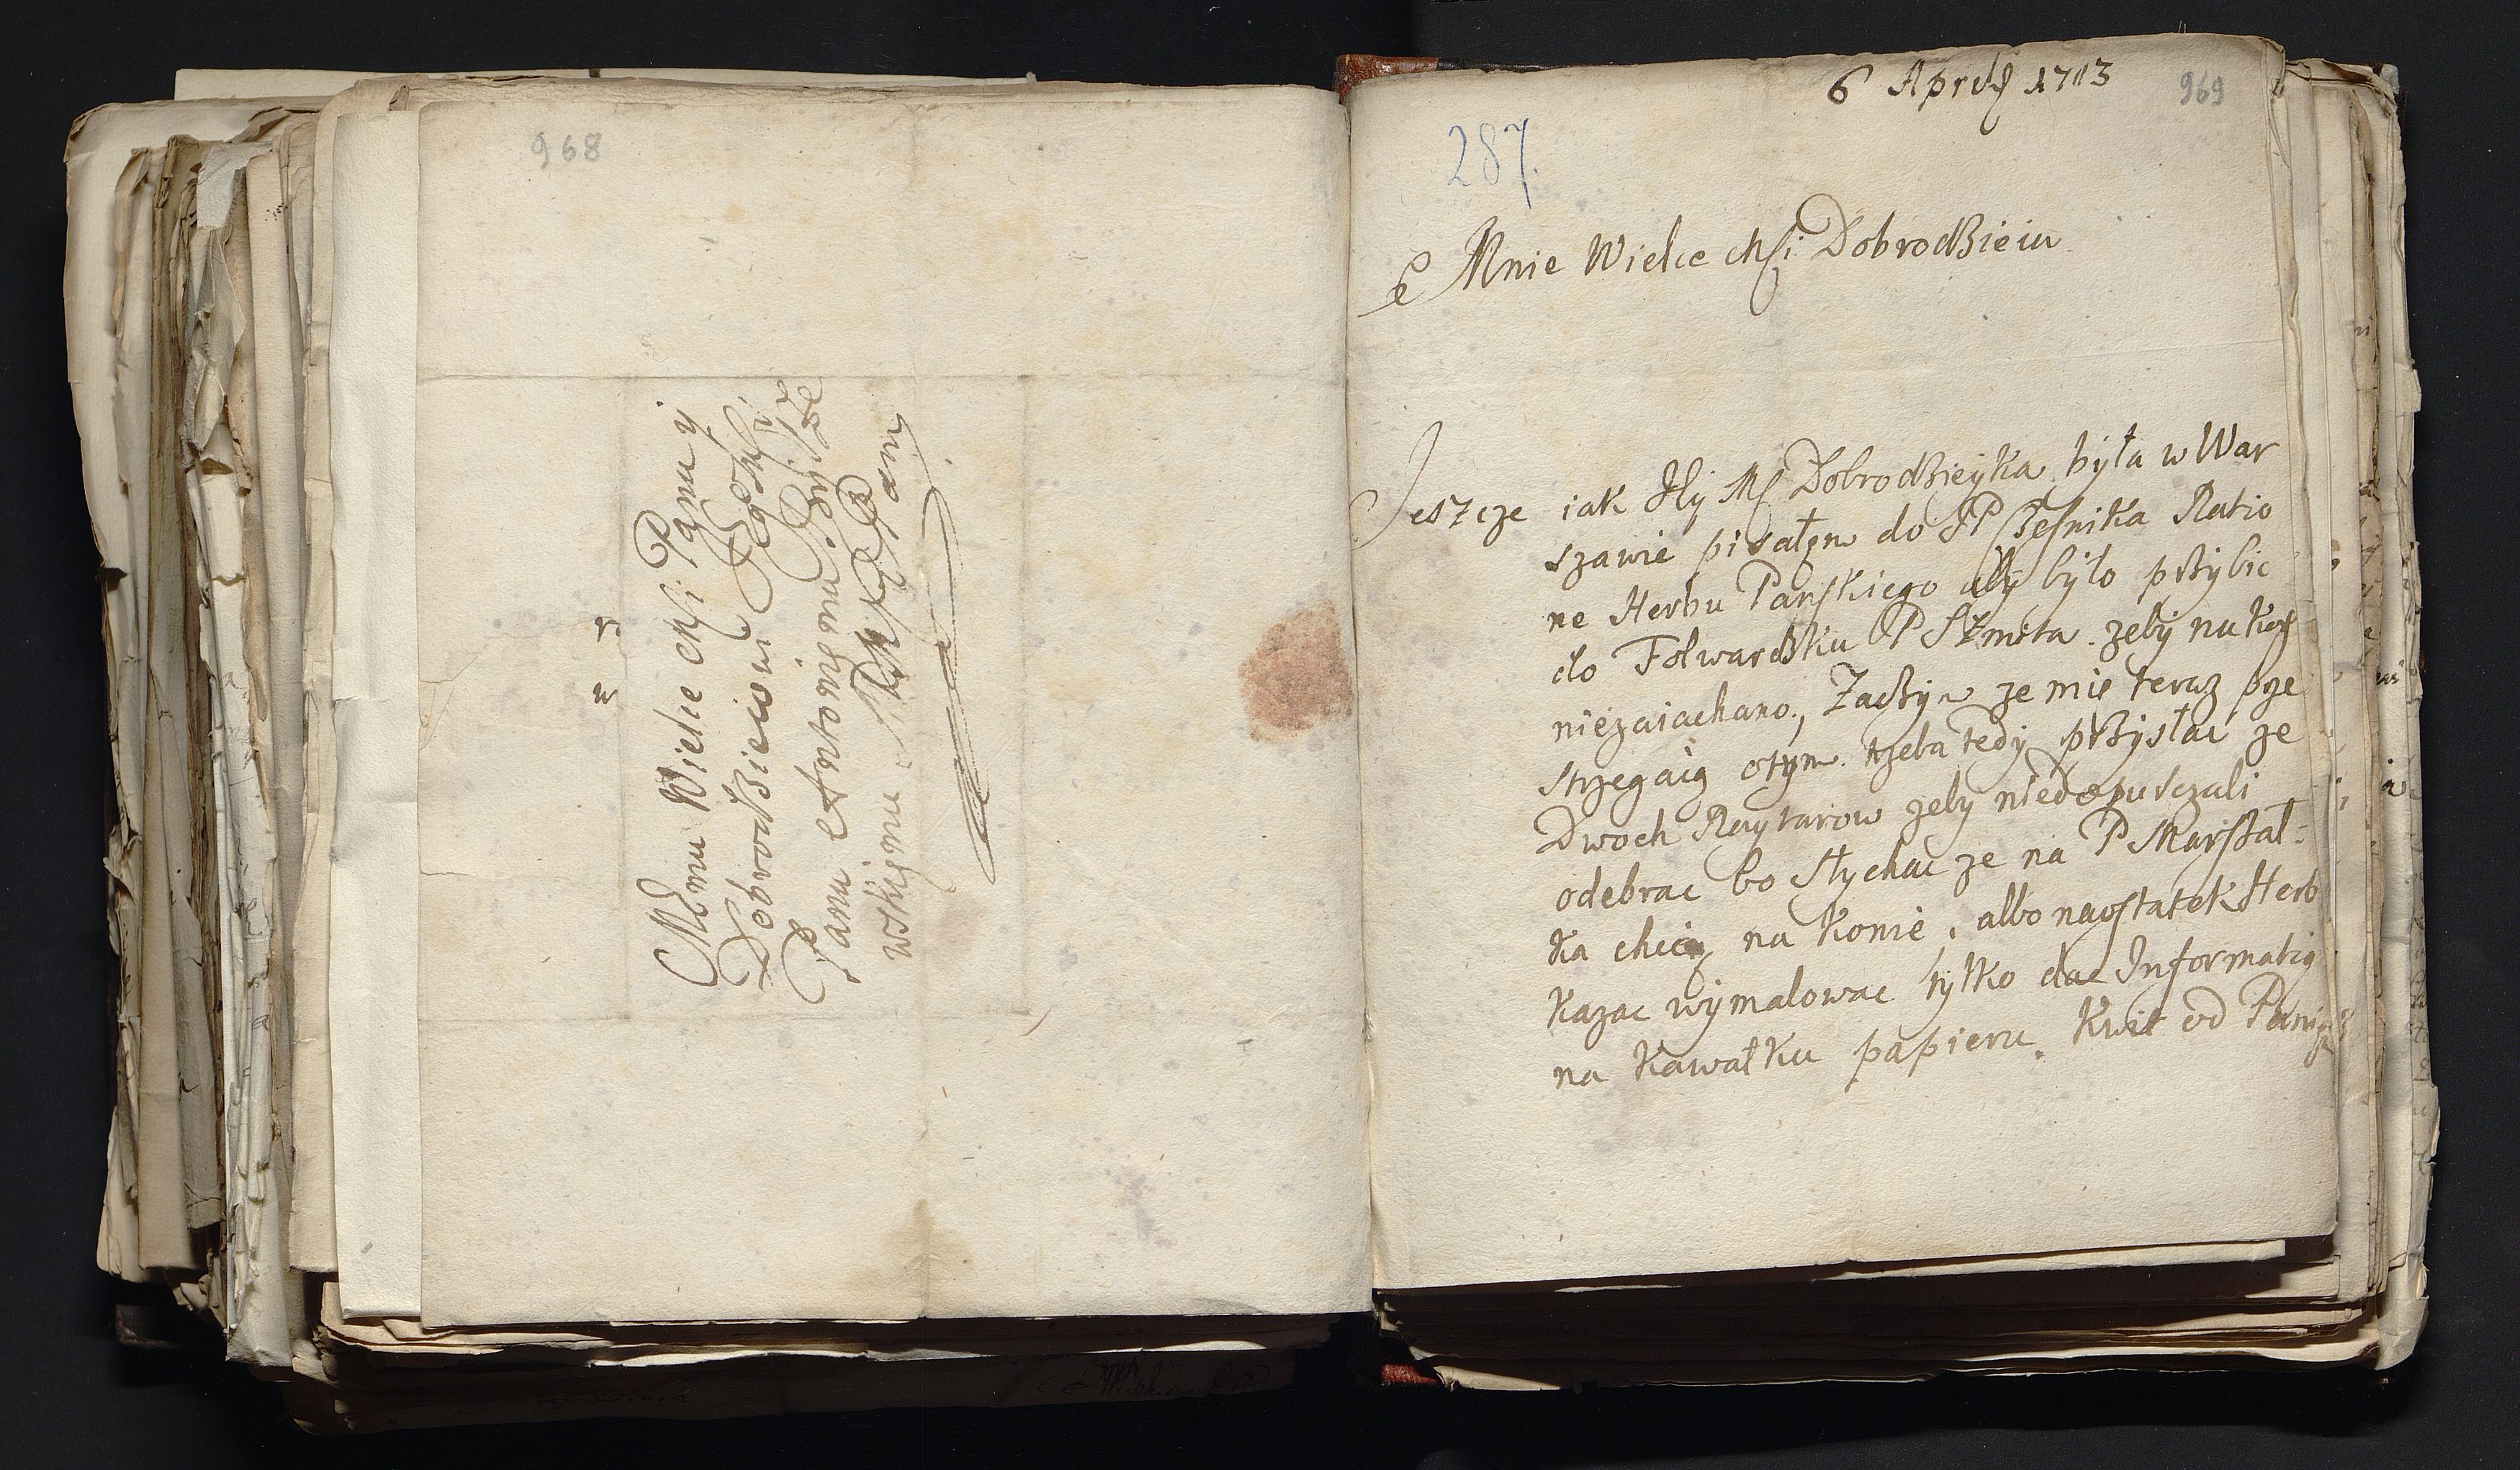 968
Memu Wielce Mći Panu y
Dobrodzieiowi Jego Mći
Panu Antoniemu
wskiemu
969
6 Aprilis 1713
287.
Mnie Wielce Mći Dobrodzieiu
Jeszcze iak Jey Mć Dobrodzieyka była w War
szawie pisałem do JP Cześnika Ratio
ne Herbu Pańskiego aby było przybic
do Folwarczku P Szmita. zeby na
niezaiachano, ze mie teraz prze
strzegaią otym. trzeba tedy przysłac ze
Dwoch Raytarow zeby niedopusczali
odebrac bo słychac ze na P Marszał-
ka chcą na Konie, albo naostatek Herb
kazac wymalowac tylko dac Informatią
na kawałku papieru. Kwit od